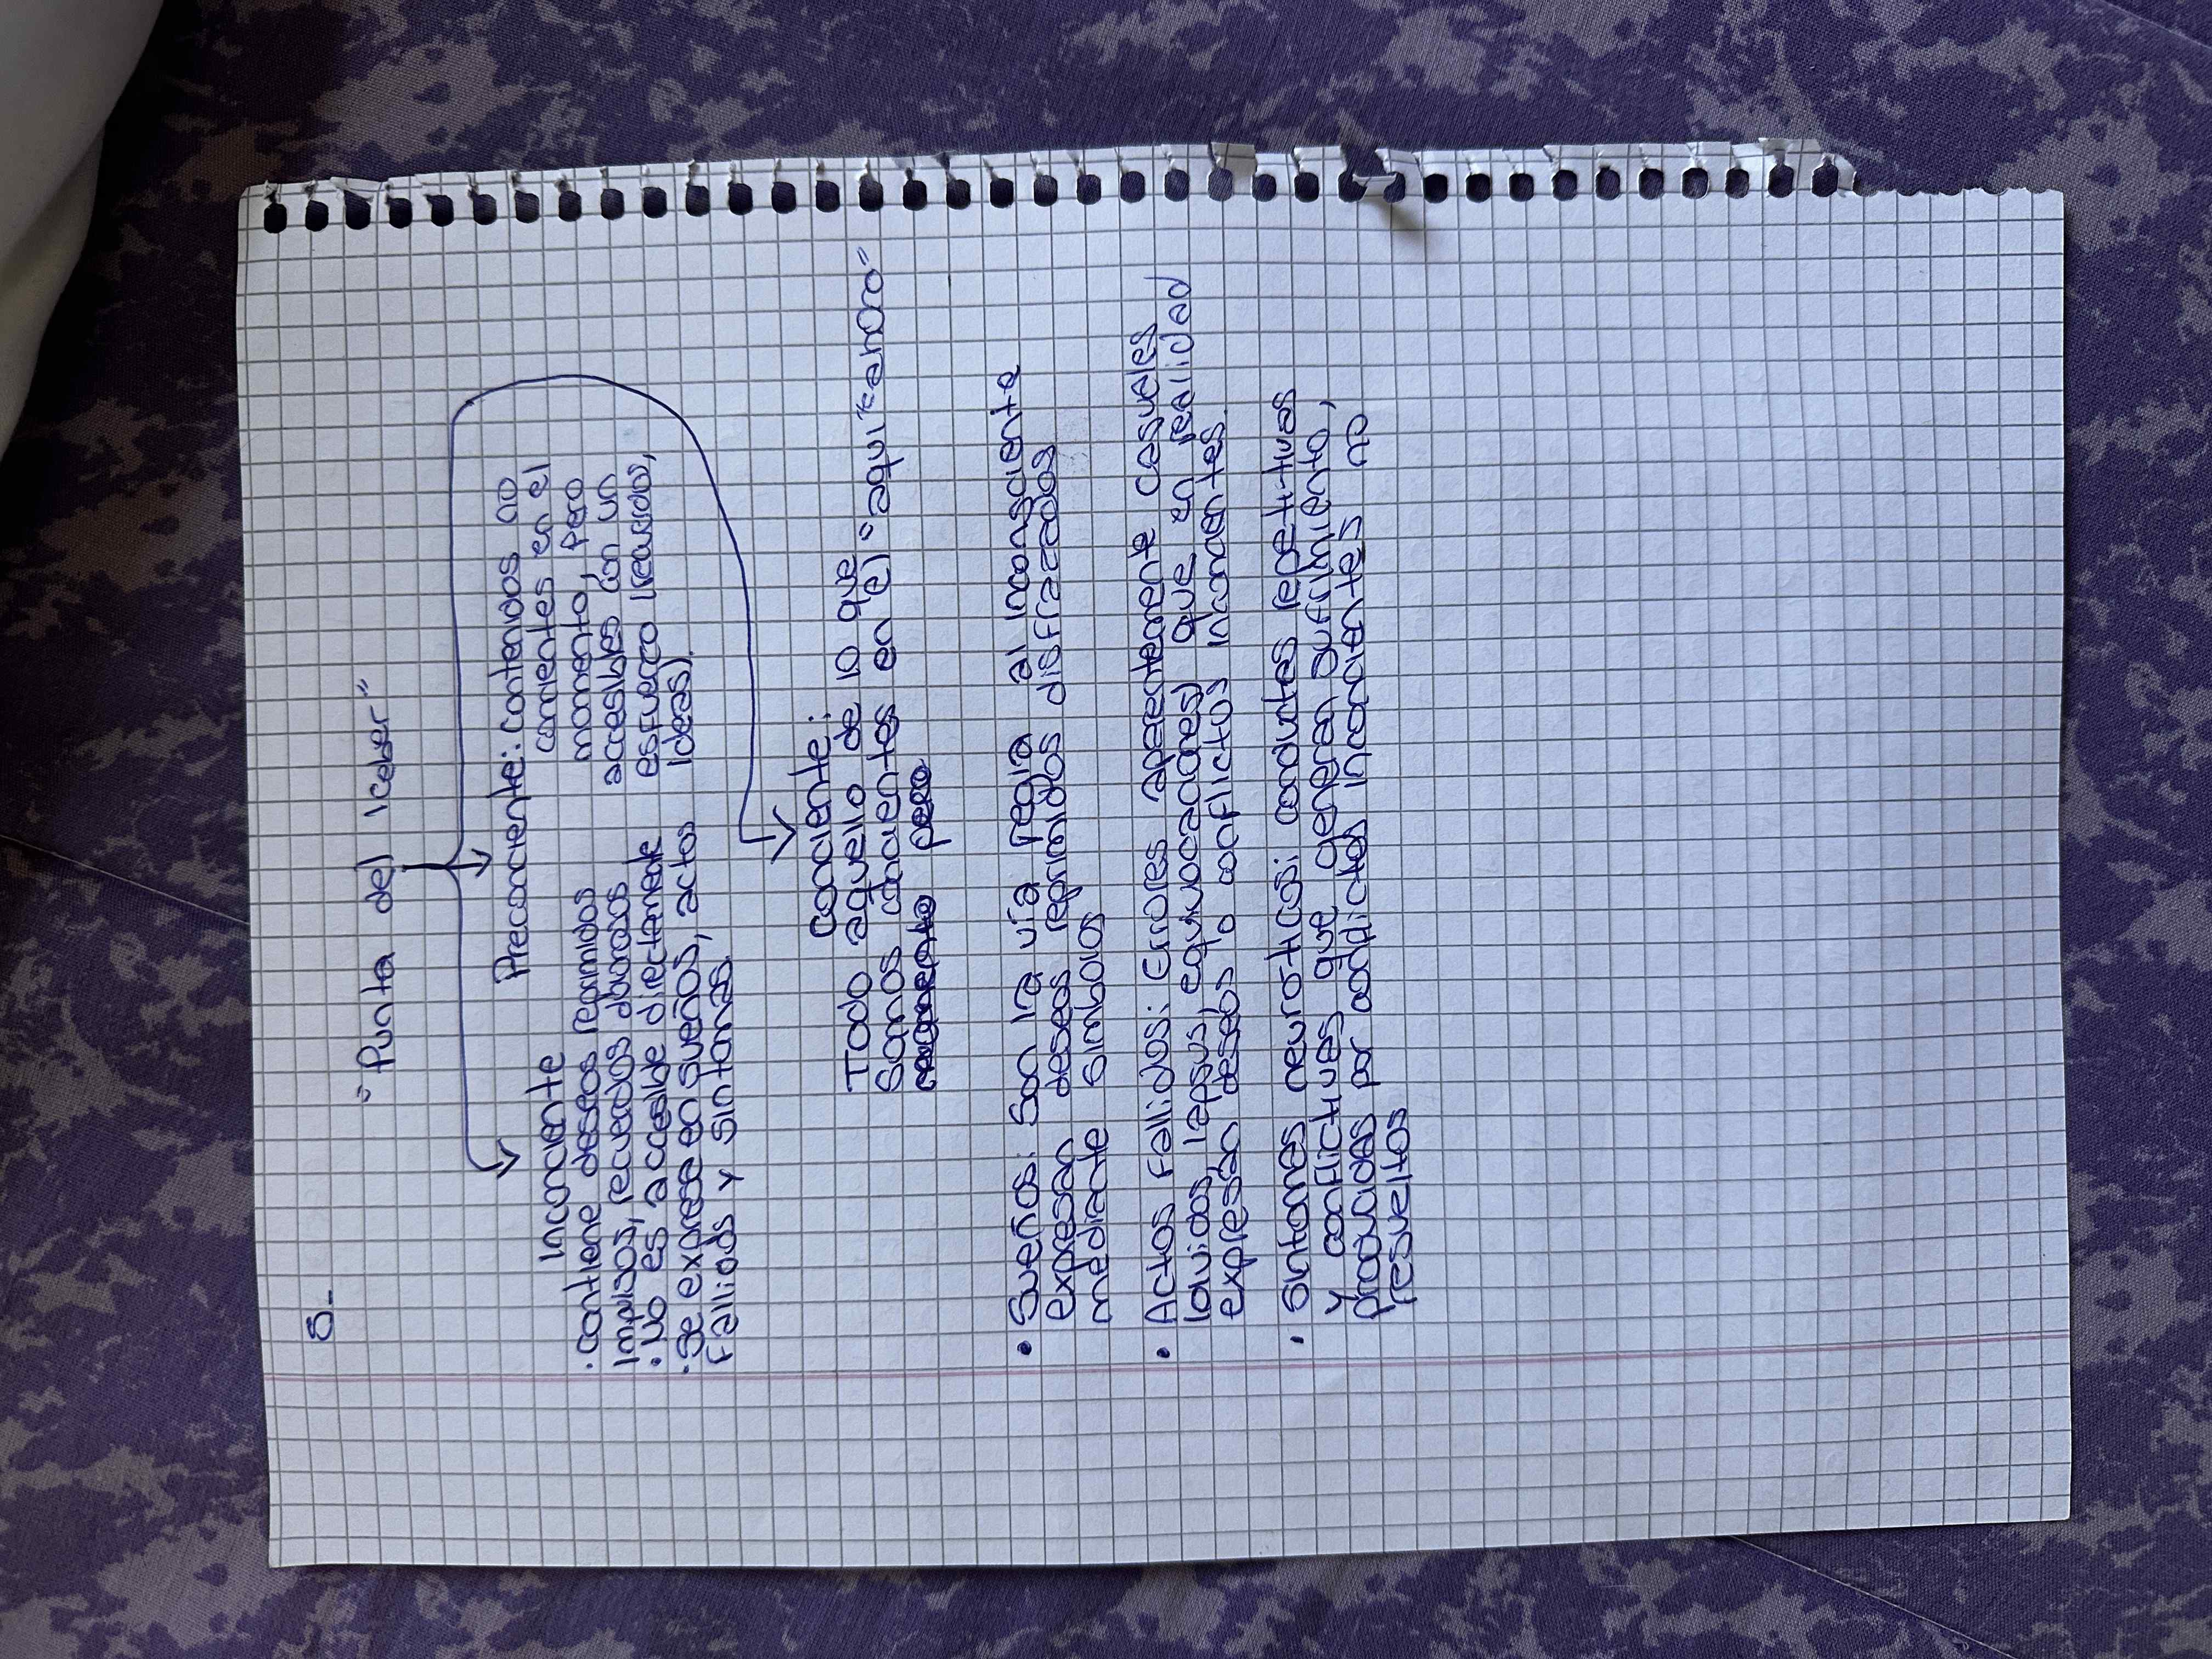 5-
"Punta del Iceber"
Inconciente
· contiene deseos reprimidos
impulsos, recuerdos dolorosos
· No es accesible directamente
· Se expresa en sueños, actos
fallidos y sintomas.
Preconciente: Contenidos no
concientes en el
momento, pero
accesibles con un
esfuerzo (recuerdos,
ideas).
Conciente:
Todo aquello de lo que
somos concientes en el "aquí" "ahora"
pero
• Sueños: Son la vía regia al inconsciente
expresan deseos reprimidos disfrazados
mediante simbolos
• Actos fallidos: Errores aparentemente casuales
(olvidos, lapsus, equivocaciones) que en realidad
expresan deseos o conflictos inconcientes.
• Sintomas neuroticos: conductas repetitivas
y conflictivas que generan sufrimiento,
producidas por conflictos inconcientes no
resueltos